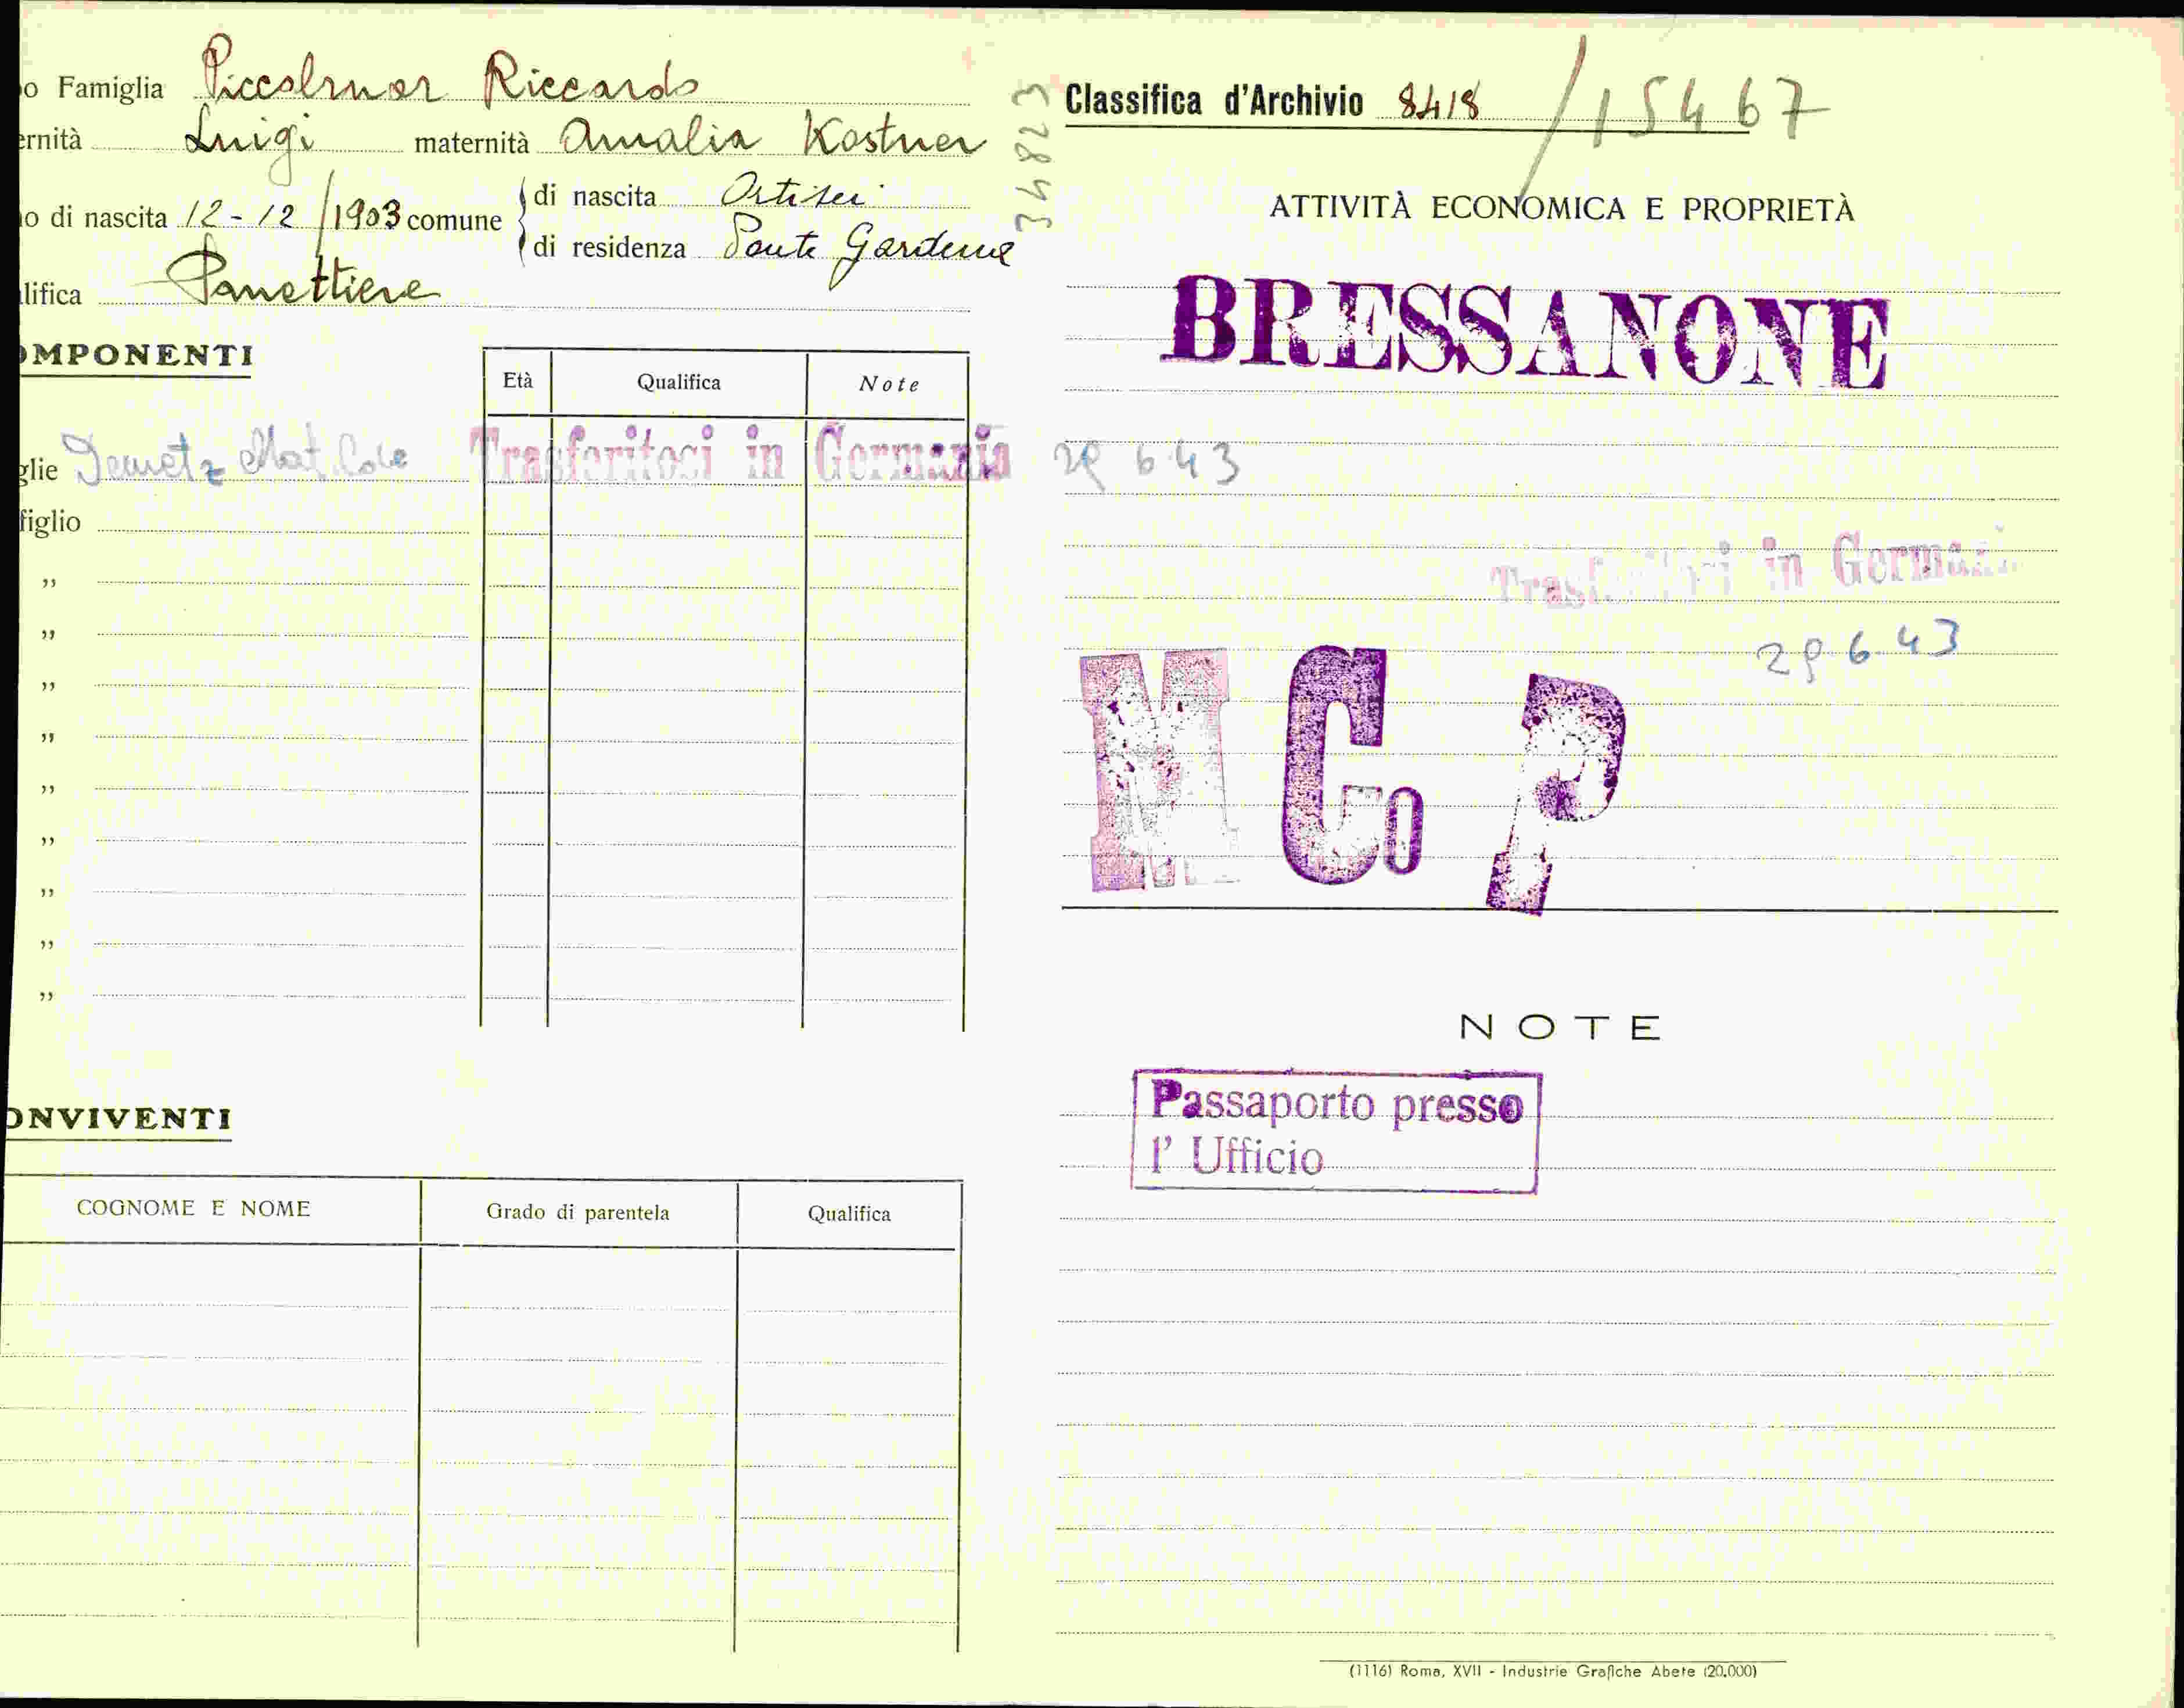 o Famiglia Piccolruor Riccardo
ernità Luigi maternità Amalia Kostner
o di nascita 12-12/1903 comune di nascita Ortisei
di residenza Ponte Gardena
lifica Panettiere
OMPONENTI
Età Qualifica Note
glie Demetz Trasferitosi in Germania
figlio
"
"
"
"
"
"
"
"
"
ONVIVENTI
COGNOME E NOME Grado di parentela Qualifica
34823
Classifica d'Archivio 8418 / 15467
ATTIVITÀ ECONOMICA E PROPRIETÀ
BRESSANONE
29 6 43
Trasferitosi in Germani
29 6.43
M Co P
NOTE
Passaporto presso
l' Ufficio
(1116) Roma, XVII - Industrie Grafiche Abete (20.000)